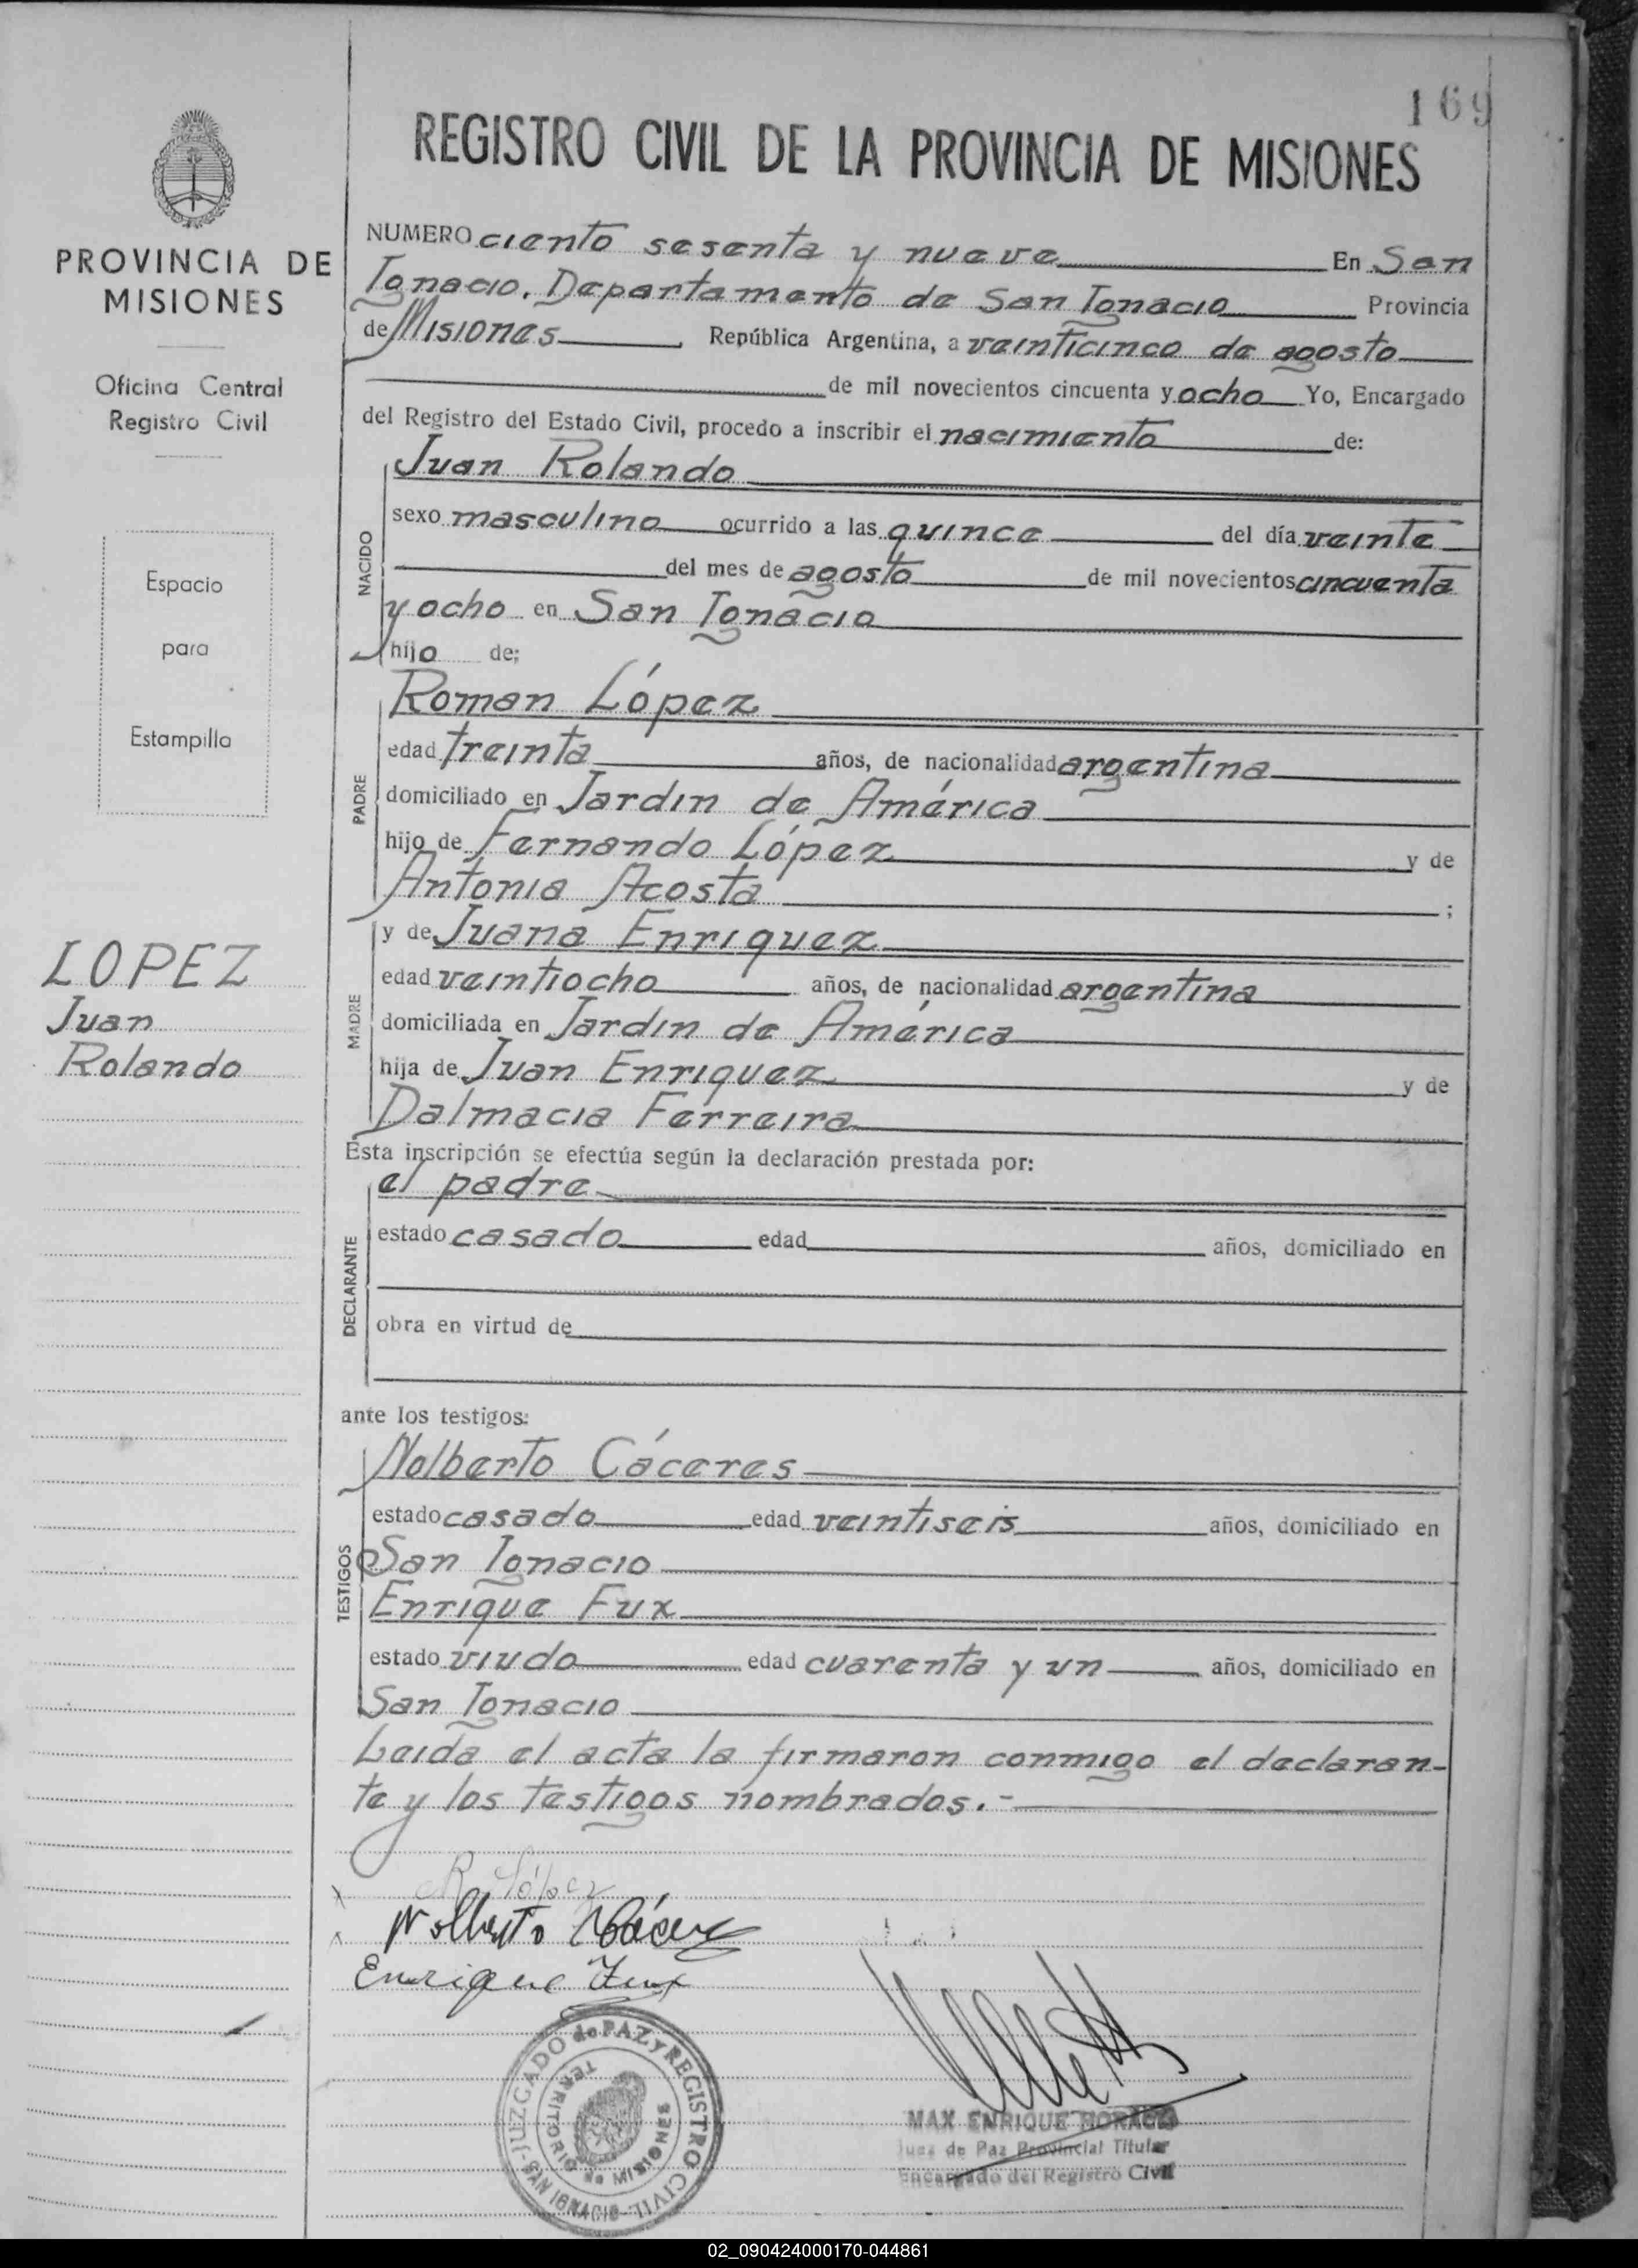 169
REGISTRO CIVIL DE LA PROVINCIA DE MISIONES
PROVINCIA DE
MISIONES
Oficina Central
Registro Civil
Espacio
para
Estampilla
LOPEZ
Juan
Rolando
NUMERO ciento sesenta y nueve En San
Ignacio. Departamento de San Ignacio Provincia
de Misiones República Argentina, a veinticinco de agosto
de mil novecientos cincuenta y ocho Yo, Encargado
del Registro del Estado Civil, procedo a inscribir el nacimiento de:
Juan Rolando
NACIDO
sexo masculino ocurrido a las quince del día veinte
del mes de agosto de mil novecientos cincuenta
y ocho en San Ignacio
hijo de;
Roman López
PADRE
edad treinta años, de nacionalidad argentina
domiciliado en Jardin de América
hijo de Fernando López y de
Antonia Acosta ;
y de Juana Enriquez
MADRE
edad veintiocho años, de nacionalidad argentina
domiciliada en Jardin de América
hija de Juan Enriquez y de
Dalmacia Ferreira
Esta inscripción se efectúa según la declaración prestada por:
el padre
DECLARANTE
estado casado edad años, domiciliado en
obra en virtud de
ante los testigos:
Nolberto Cáceres
TESTIGOS
estado casado edad veintiseis años, domiciliado en
San Ignacio
Enrique Fux
estado viudo edad cuarenta y un años, domiciliado en
San Ignacio
Leida el acta la firmaron conmigo el declaran-
te y los testigos nombrados.-
R López
Nolberto Cáceres
Enrique Fux
JUZGADO de PAZ y REGISTRO CIVIL - SAN IGNACIO -
TERRITORIO de MISIONES
MAX ENRIQUE HORACIO
Juez de Paz Provincial Titular
Encargado del Registro Civil
02_090424000170-044861